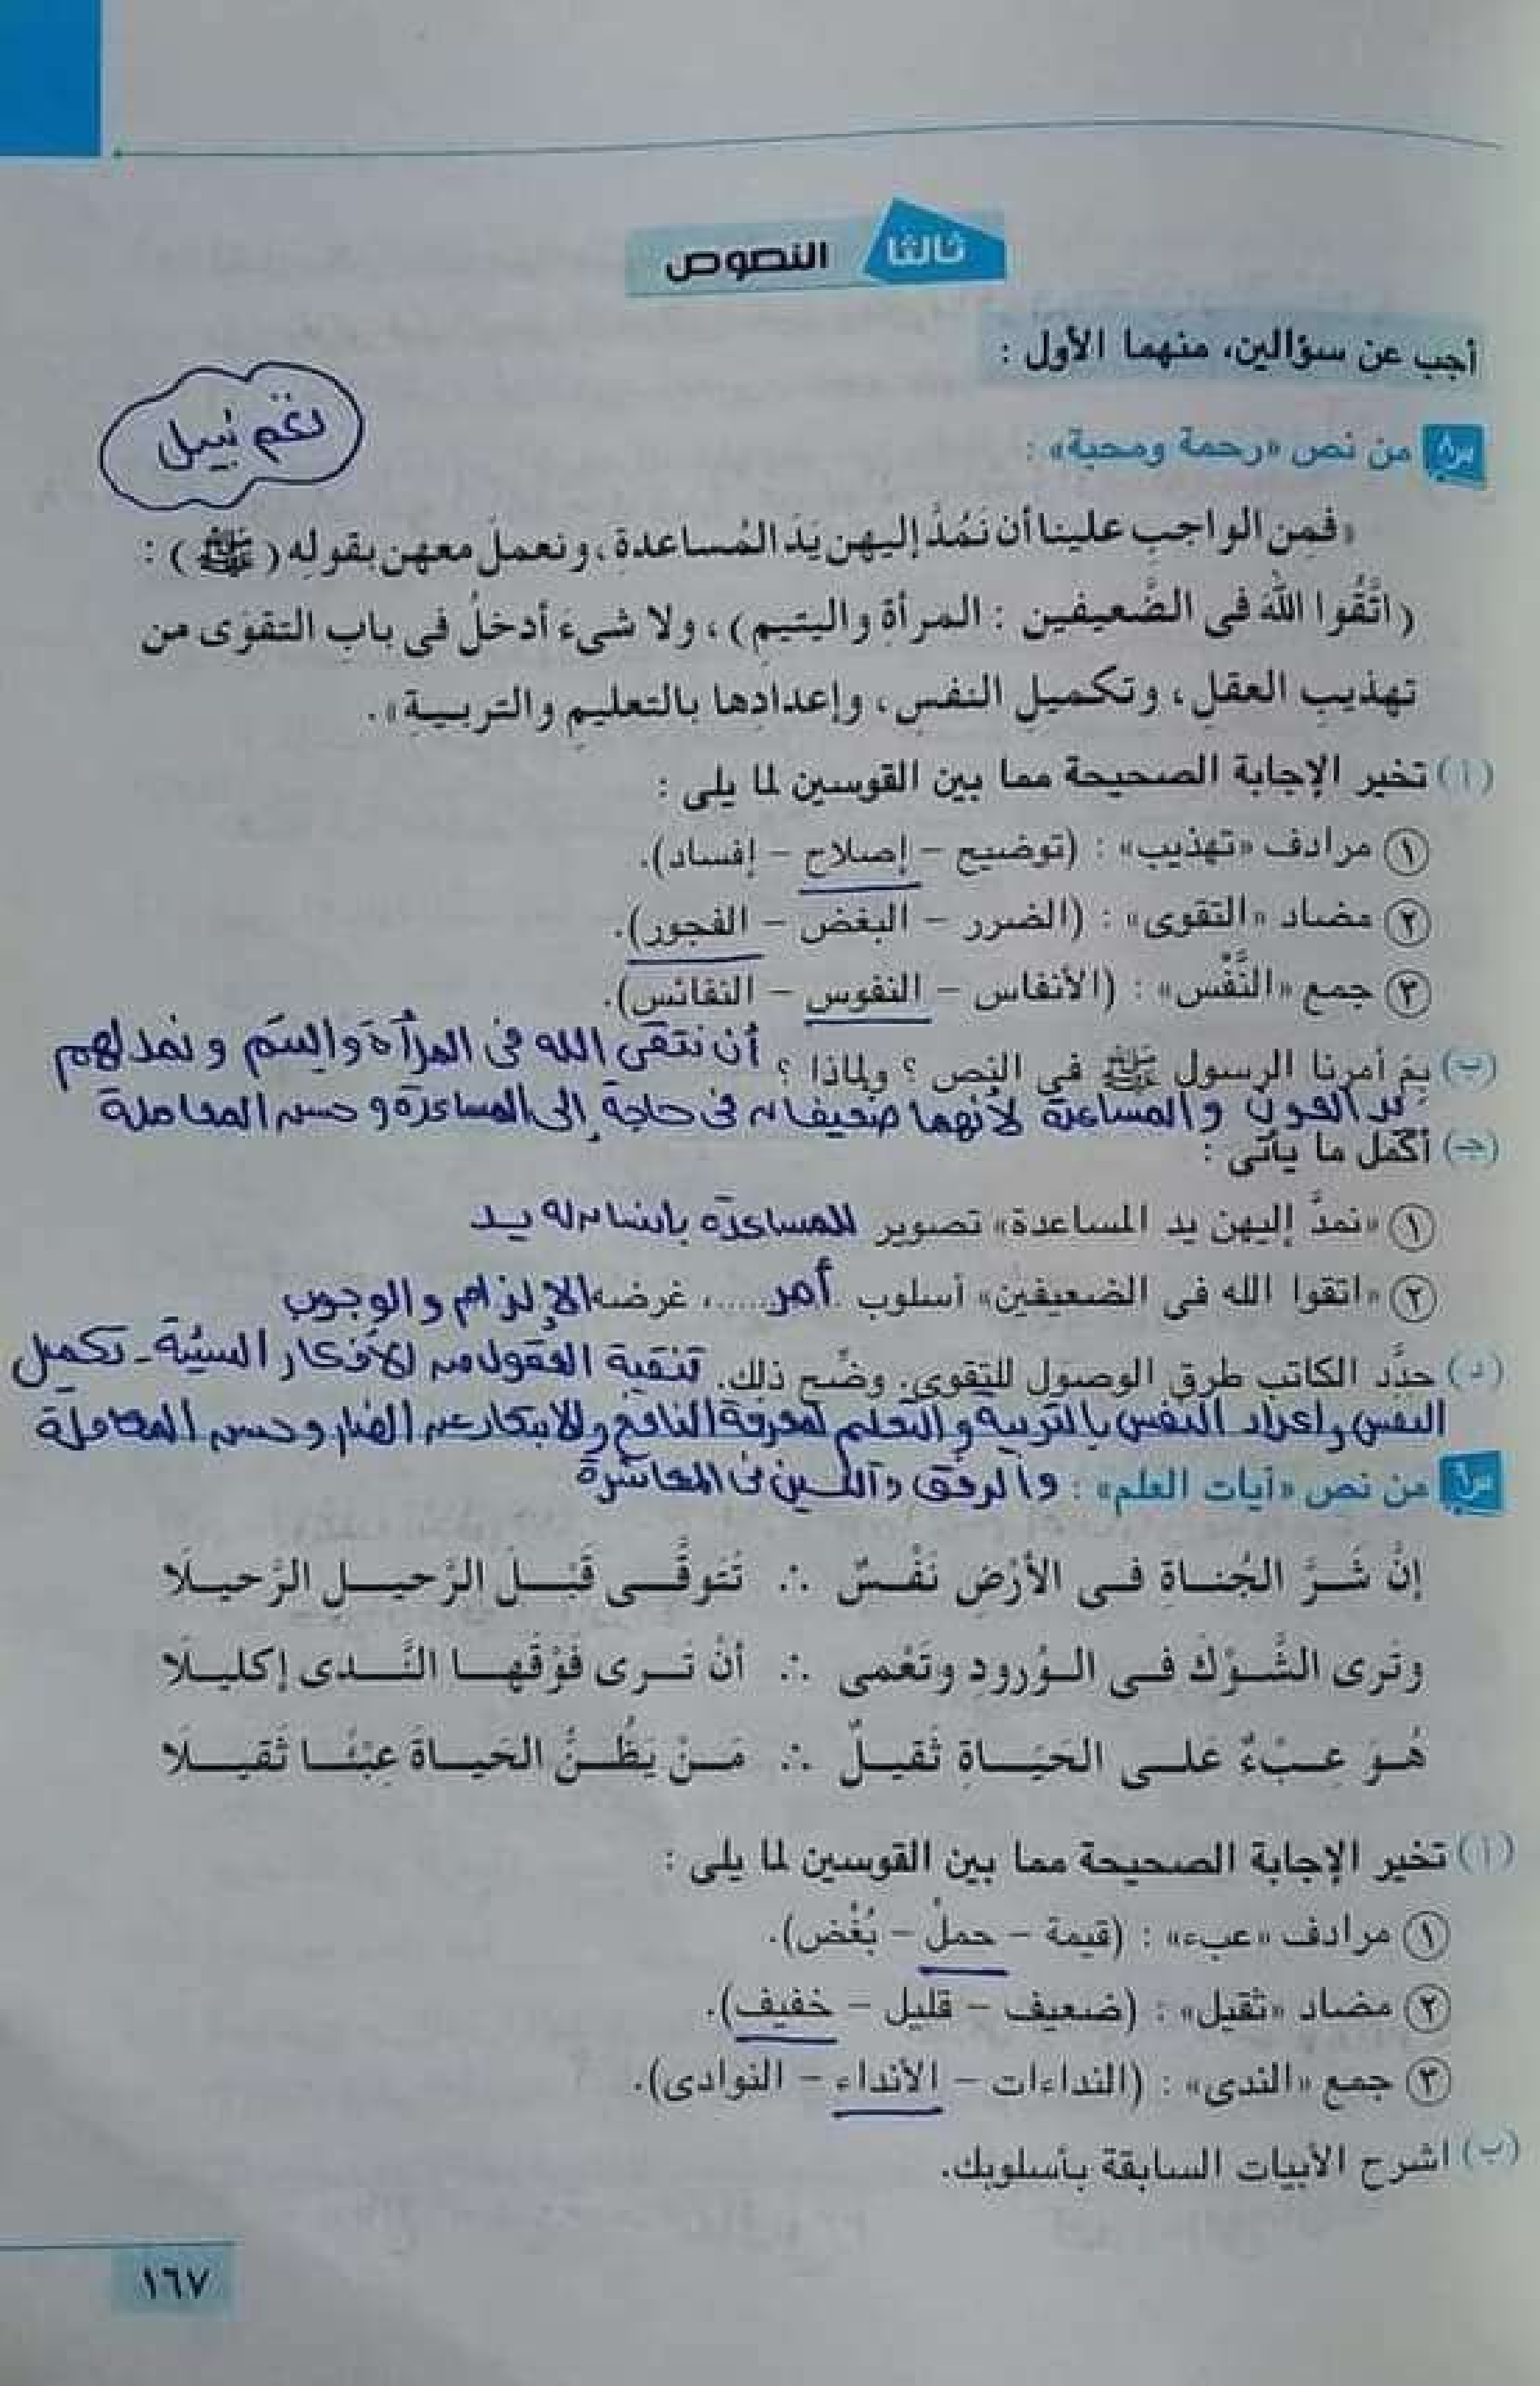 ثالثا النصوص
أجب عن سؤالين، منهما الأول :
نغم نبيل
س٨ من نص «رحمة ومحبة» :
«فمِن الواجبِ علينا أن نَمُدَّ إليهن يَدَ المُساعدةِ، ونعملَ معهن بقولِه (ﷺ) :
(اتَّقُوا اللهَ فى الضَّعيفين : المرأةِ واليتيمِ)، ولا شىءَ أدخلُ فى بابِ التقوَى من
تهذيبِ العقلِ، وتكميلِ النفسِ، وإعدادِها بالتعليمِ والتربيةِ».
(أ) تخير الإجابة الصحيحة مما بين القوسين لما يلى :
١ مرادف «تهذيب» : (توضيح – إصلاح – إفساد).
٢ مضاد «التقوى» : (الضرر – البغض – الفجور).
٣ جمع «النَّفْس» : (الأنفاس – النفوس – النفائس).
(ب) بِمَ أمرنا الرسول ﷺ فى النص ؟ ولماذا ؟ أن نتقى الله فى المرأة واليتيم ونمد لهم
يد العون والمساعدة لأنهما ضعيفان فى حاجة إلى المساعدة وحسن المعاملة
(جـ) أكمل ما يأتى :
١ «نمدَّ إليهن يد المساعدة» تصوير للمساعدة بإنسان له يد
٢ «اتقوا الله فى الضعيفين» أسلوب أمر.....، غرضه الإلزام والوجوب
(د) حدَّد الكاتب طرق الوصول للتقوى. وضِّح ذلك. تنقية العقول من الأفكار السيئة - تكميل
النفس وإعداد النفس بالتربية والتعلم لمعرفة النافع والابتكار عن الضار وحسن المعاملة
س٩ من نص «آيات العلم» : والرفق واللين فى المعاشرة
إنَّ شَرَّ الجُناةِ فى الأرْضِ نَفْسٌ ∴ تَتَوقَّى قَبْلَ الرَّحيلِ الرَّحيلَا
وتَرى الشَّوْكَ فى الوُرودِ وتَعْمى ∴ أنْ تَرى فَوْقَها النَّدى إكليلَا
هُوَ عِبْءٌ على الحَيَاةِ ثَقيلٌ ∴ مَنْ يَظُنُّ الحَياةَ عِبْئًا ثَقيلَا
(أ) تخير الإجابة الصحيحة مما بين القوسين لما يلى :
١ مرادف «عبء» : (قيمة – حملْ – بُغْض).
٢ مضاد «ثقيل» : (ضعيف – قليل – خفيف).
٣ جمع «الندى» : (النداءات – الأنداء – النوادى).
(ب) اشرح الأبيات السابقة بأسلوبك.
١٦٧